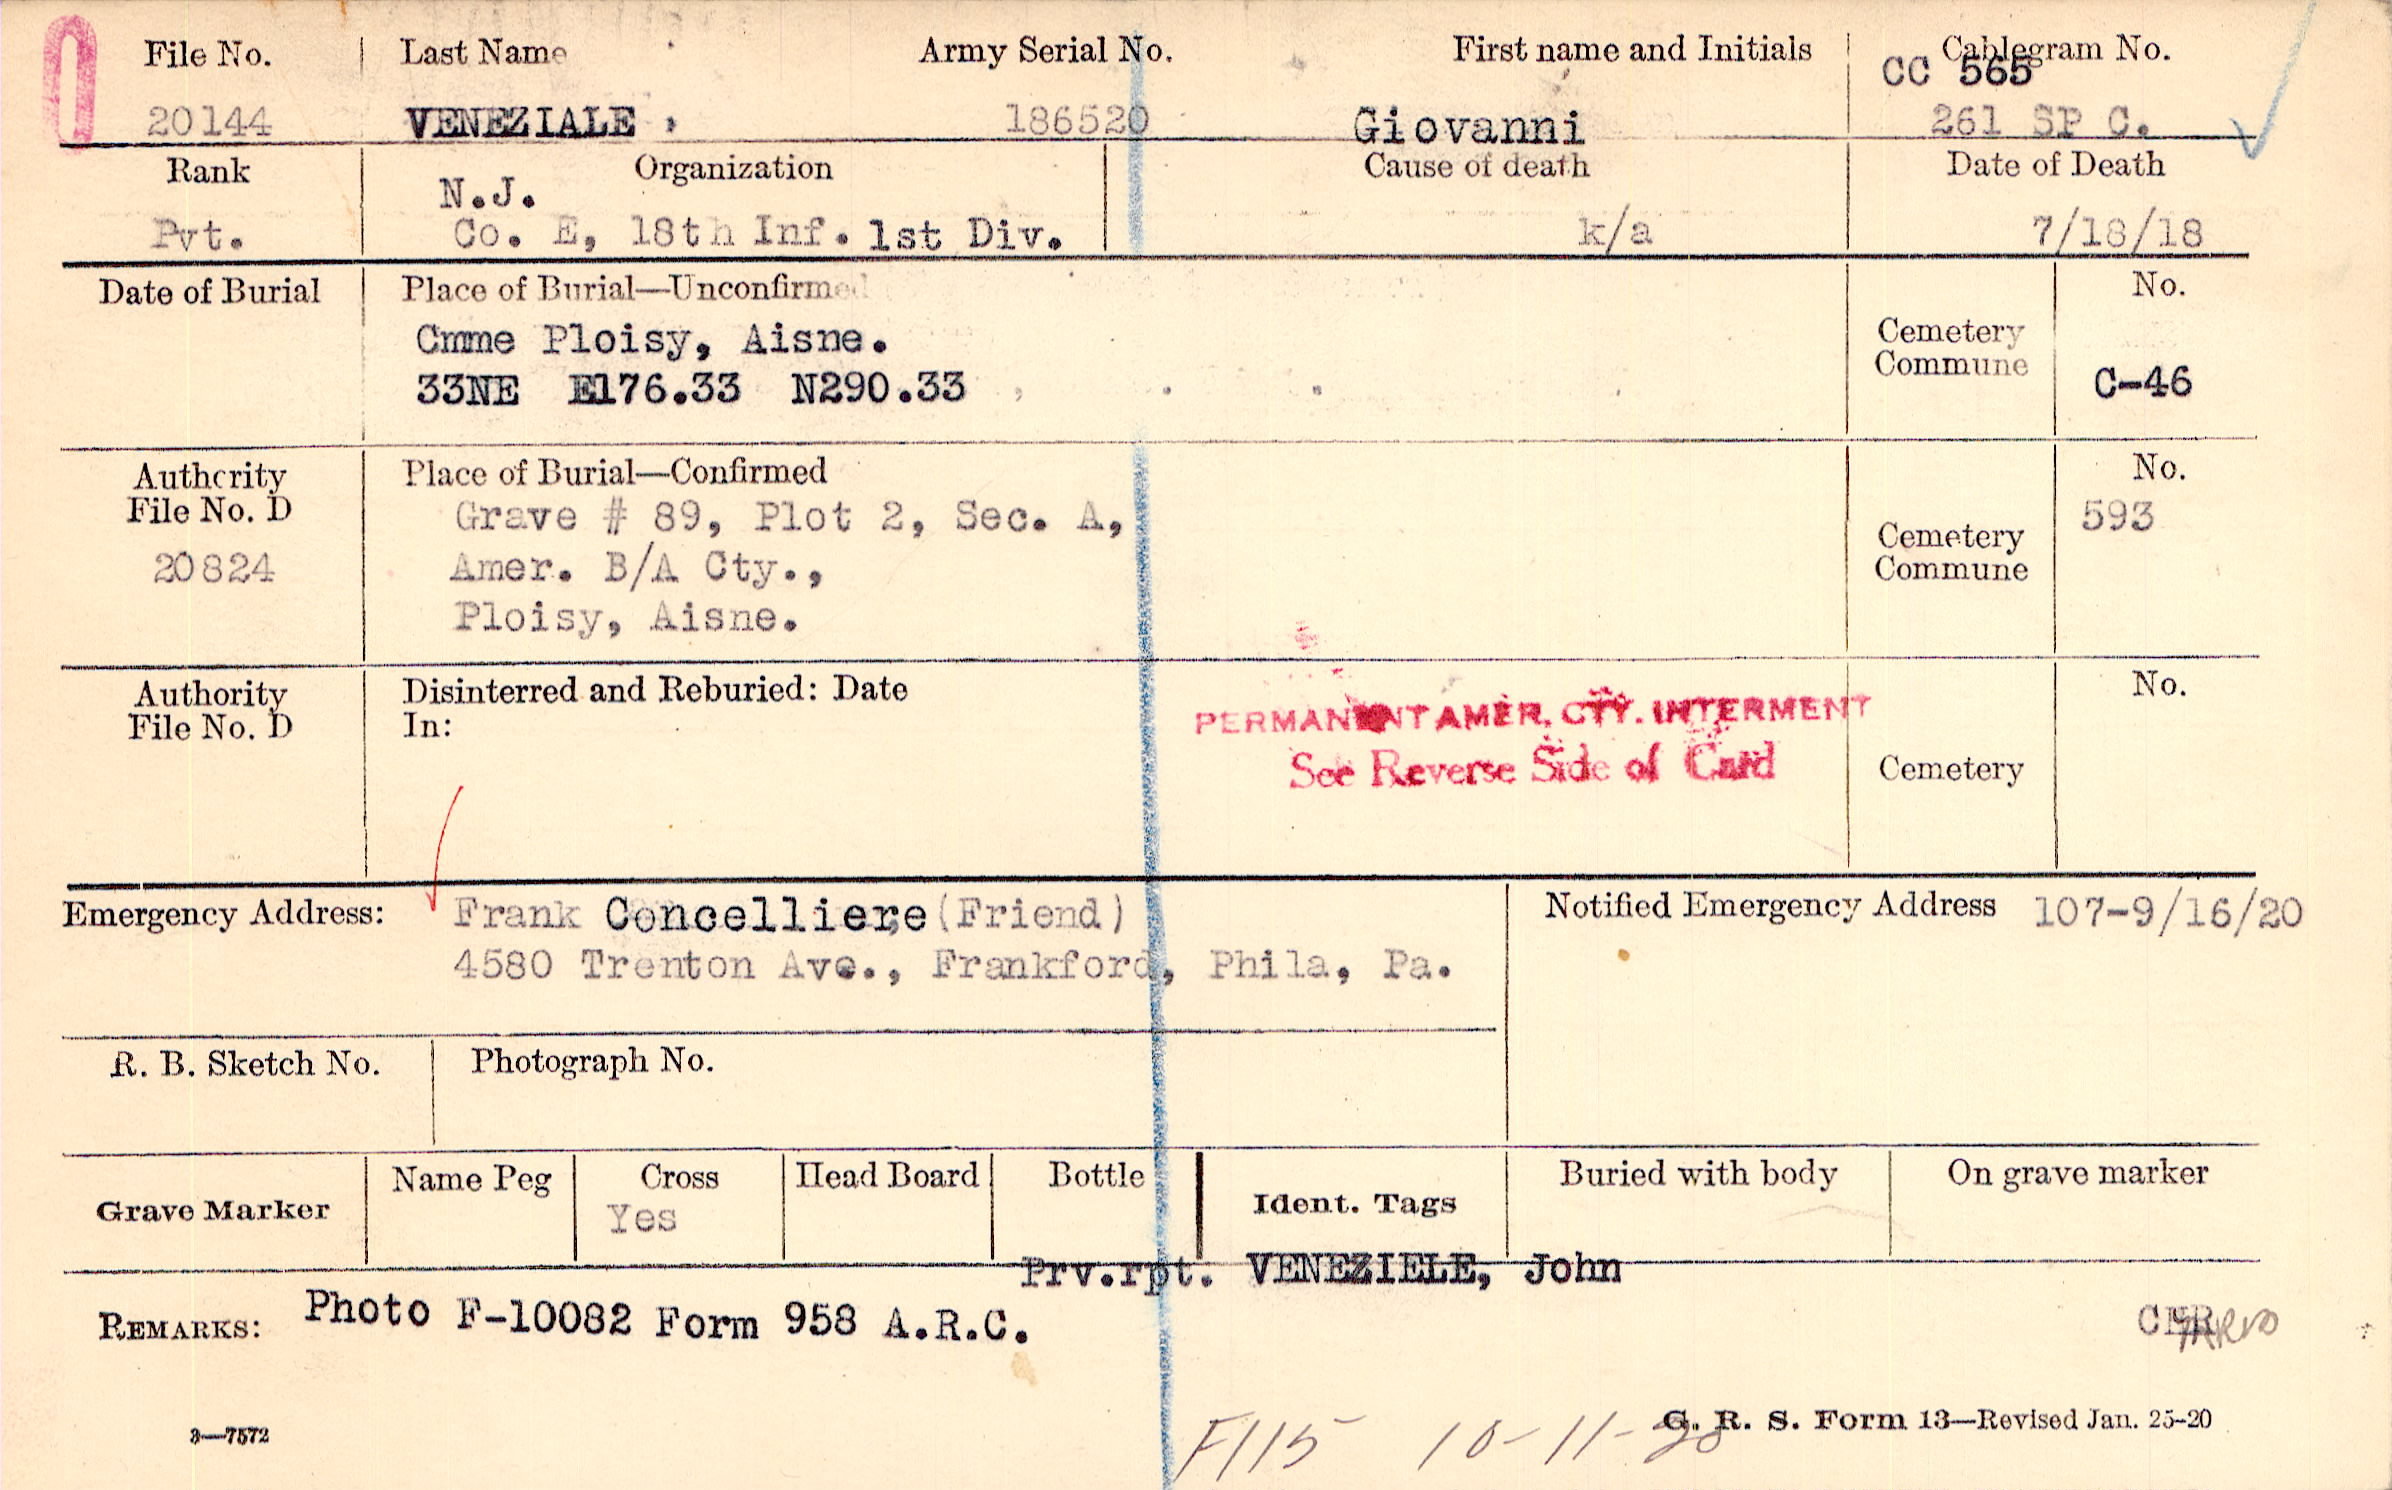 File No. Last Name Army Serial No. First name and Initials Cablegram No.
CC 565
20144 VENEZIALE, 186520 Giovanni 261 SP C.
Rank Organization Cause of death Date of Death
N.J.
Pvt. Co. E, 18th Inf. 1st Div. k/a 7/18/18
Date of Burial Place of Burial—Unconfirmed No.
Cmme Ploisy, Aisne. Cemetery
Commune
33NE E176.33 N290.33 C-46
Authority Place of Burial—Confirmed No.
File No. D Grave # 89, Plot 2, Sec. A, 593
20824 Amer. B/A Cty., Cemetery
Commune
Ploisy, Aisne.
Authority Disinterred and Reburied: Date No.
File No. D In: PERMANENT AMER. CTY. INTERMENT
See Reverse Side of Card Cemetery
Emergency Address: Frank Concelliere (Friend) Notified Emergency Address 107-9/16/20
4580 Trenton Ave., Frankford, Phila, Pa.
R. B. Sketch No. Photograph No.
Grave Marker Name Peg Cross Head Board Bottle Ident. Tags Buried with body On grave marker
Yes
Prv.rpt. VENEZIELE, John
REMARKS: Photo F-10082 Form 958 A.R.C.
3—7572 G. R. S. Form 13—Revised Jan. 25-20
F115 10-11-20